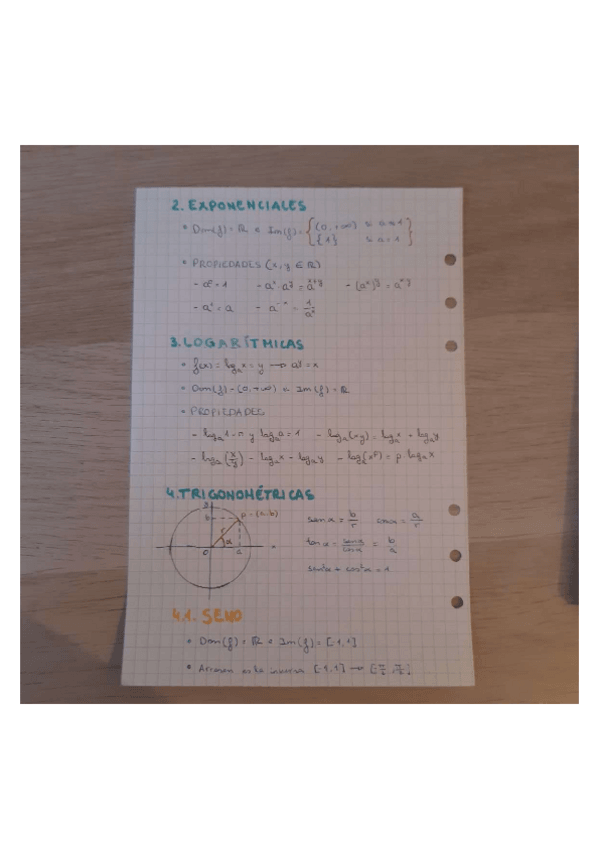 2. EXPONENCIALES
• Dom(f) = ℝ e Im(f) = { (0, +∞) si a ≠ 1
{1} si a = 1 }
• PROPIEDADES (x, y ∈ ℝ)
- a⁰ = 1 - aˣ · aʸ = aˣ⁺ʸ - (aˣ)ʸ = aˣʸ
- a¹ = a - a⁻ˣ = 1/aˣ
3. LOGARÍTMICAS
• f(x) = logₐx = y → aʸ = x
• Dom(f) = (0, +∞) e Im(f) = ℝ
• PROPIEDADES
- logₐ1 = y logₐa = 1 - logₐ(x·y) = logₐx + logₐy
- logₐ(x/y) = logₐx - logₐy - logₐ(xᵖ) = p · logₐx
4. TRIGONOMÉTRICAS
P = (a, b)
b
r
α
O a
sen α = b/r cos α = a/r
tan α = sen α/cos α = b/a
sen²α + cos²α = 1
4.1. SENO
• Dom(f) = ℝ e Im(f) = [-1, 1]
• Arcosen es la inversa [-1, 1] → [-π/2, π/2]